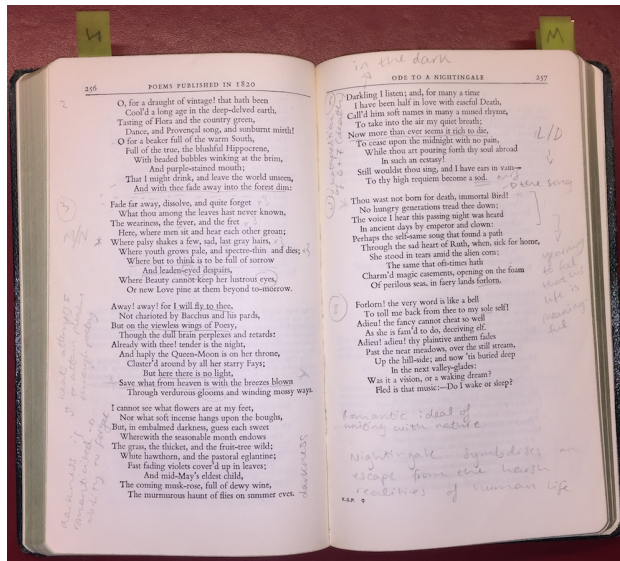 256 POEMS PUBLISHED IN 1820
O, for a draught of vintage! that hath been
Cool'd a long age in the deep-delved earth,
Tasting of Flora and the country green,
Dance, and Provençal song, and sunburnt mirth!
O for a beaker full of the warm South,
Full of the true, the blushful Hippocrene,
With beaded bubbles winking at the brim,
And purple-stained mouth;
That I might drink, and leave the world unseen,
And with thee fade away into the forest dim:
Fade far away, dissolve, and quite forget
What thou among the leaves hast never known,
The weariness, the fever, and the fret
Here, where men sit and hear each other groan;
Where palsy shakes a few, sad, last gray hairs,
Where youth grows pale, and spectre-thin and dies;
Where but to think is to be full of sorrow
And leaden-eyed despairs,
Where Beauty cannot keep her lustrous eyes,
Or new Love pine at them beyond to-morrow.
Away! away! for I will fly to thee,
Not charioted by Bacchus and his pards,
But on the viewless wings of Poesy,
Though the dull brain perplexes and retards:
Already with thee! tender is the night,
And haply the Queen-Moon is on her throne,
Cluster'd around by all her starry Fays;
But here there is no light,
Save what from heaven is with the breezes blown
Through verdurous glooms and winding mossy ways.
I cannot see what flowers are at my feet,
Nor what soft incense hangs upon the boughs,
But, in embalmed darkness, guess each sweet
Wherewith the seasonable month endows
The grass, the thicket, and the fruit-tree wild;
White hawthorn, and the pastoral eglantine;
Fast fading violets cover'd up in leaves;
And mid-May's eldest child,
The coming musk-rose, full of dewy wine,
The murmurous haunt of flies on summer eves.
darkness
M
in the dark
ODE TO A NIGHTINGALE 257
Darkling I listen; and, for many a time
I have been half in love with easeful Death,
Call'd him soft names in many a mused rhyme,
To take into the air my quiet breath;
Now more than ever seems it rich to die,
To cease upon the midnight with no pain,
While thou art pouring forth thy soul abroad
In such an ecstasy!
Still wouldst thou sing, and I have ears in vain—
To thy high requiem become a sod.
L/D
the song
Thou wast not born for death, immortal Bird!
No hungry generations tread thee down;
The voice I hear this passing night was heard
In ancient days by emperor and clown:
Perhaps the self-same song that found a path
Through the sad heart of Ruth, when, sick for home,
She stood in tears amid the alien corn;
The same that oft-times hath
Charm'd magic casements, opening on the foam
Of perilous seas, in faery lands forlorn.
Forlorn! the very word is like a bell
To toll me back from thee to my sole self!
Adieu! the fancy cannot cheat so well
As she is fam'd to do, deceiving elf.
Adieu! adieu! thy plaintive anthem fades
Past the near meadows, over the still stream,
Up the hill-side; and now 'tis buried deep
In the next valley-glades:
Was it a vision, or a waking dream?
Fled is that music:—Do I wake or sleep?
Romantic ideal of
uniting with nature
Nightingale symbolises an
escape from the harsh
realities of human life
K.S.P.